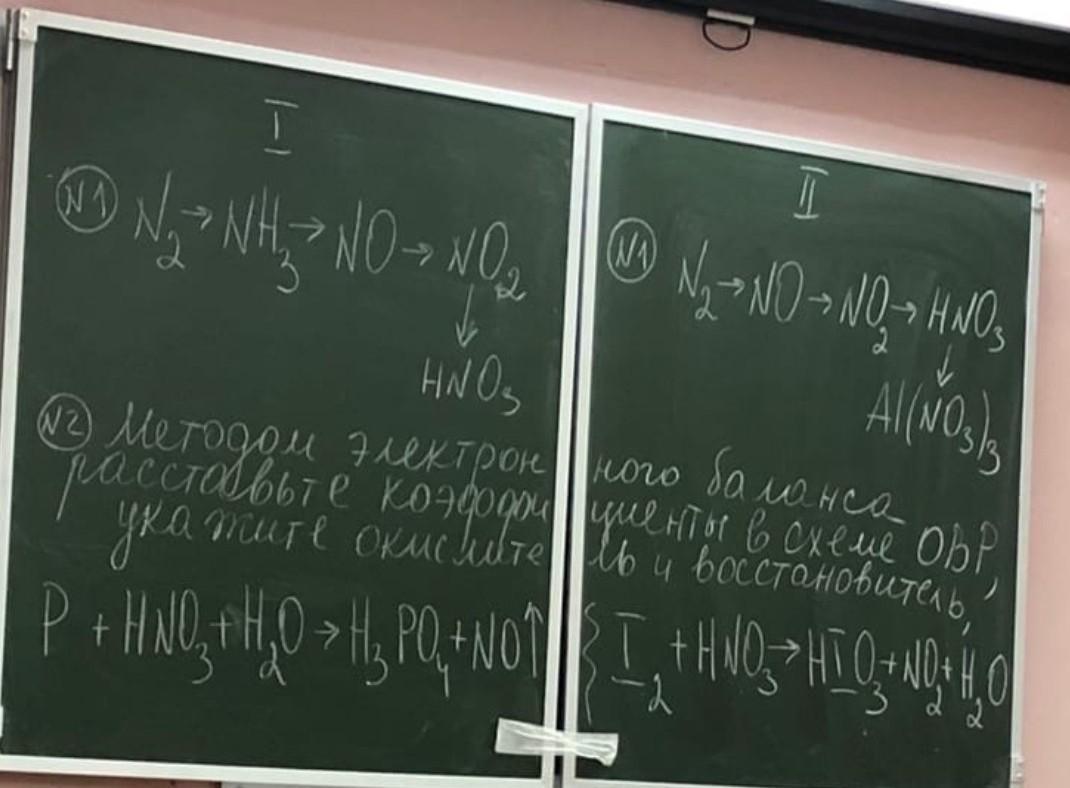 I
N1 N₂ → NH₃ → NO → NO₂
↓
HNO₃
II
N1 N₂ → NO → NO₂ → HNO₃
↓
Al(NO₃)₃
N2 Методом электронного баланса
расставьте коэффициенты в схеме ОВР,
укажите окислитель и восстановитель,
P + HNO₃ + H₂O → H₃PO₄ + NO↑
I₂ + HNO₃ → HIO₃ + NO₂ + H₂O